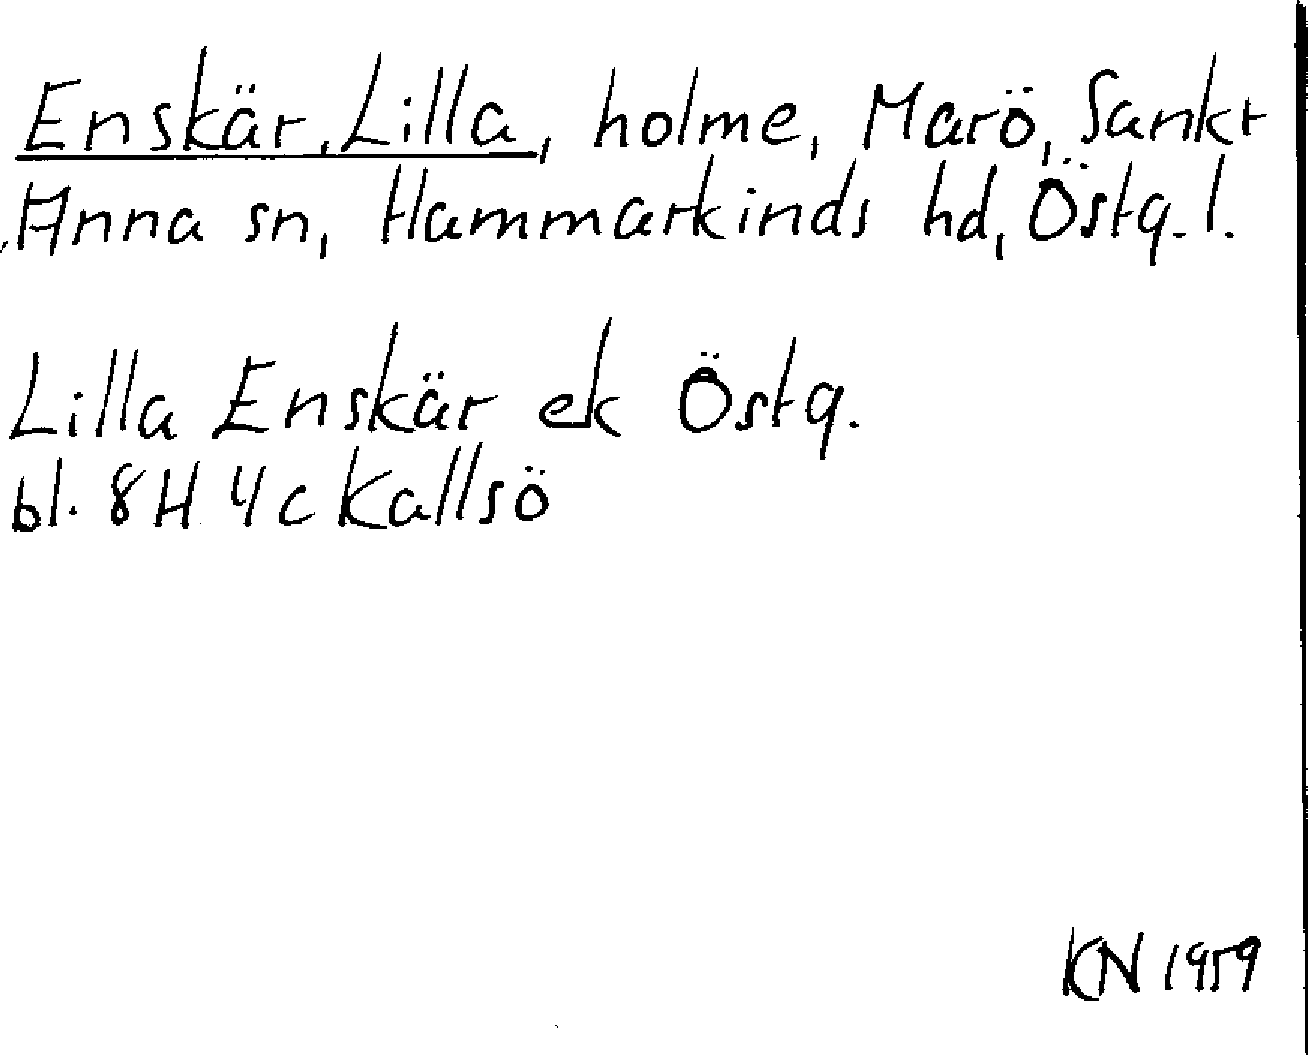 Enskär, Lilla, holme, Marö, Sankt
Anna sn, Hammarkinds hd, Östg. l.
Lilla Enskär ek Östg.
bl. 8H 4c Kallsö
KN 1959